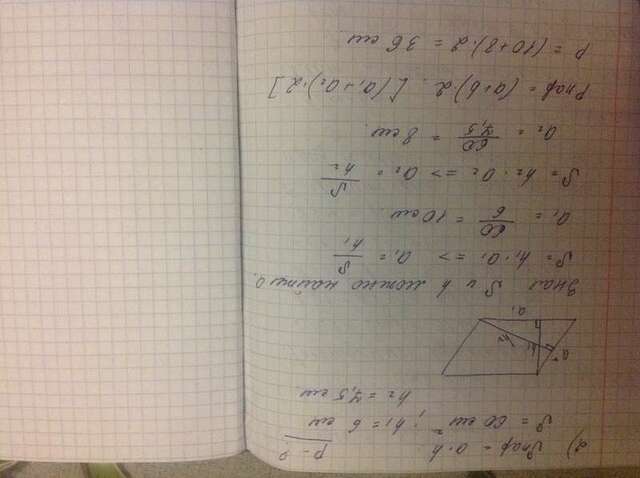 2) Sпар = a · h. P - ?
S = 60 см² ; h₁ = 6 см
h₂ = 7,5 см
a₂ h₁ h₂
a₁
Зная S и h можно найти a.
S = h₁ · a₁ => a₁ = S/h₁
a₁ = 60/6 = 10 см.
S = h₂ · a₂ => a₂ = S/h₂
a₂ = 60/7,5 = 8 см.
Pпар = (a+b)·2. [(a₁+a₂)·2]
P = (10+8)·2 = 36 см